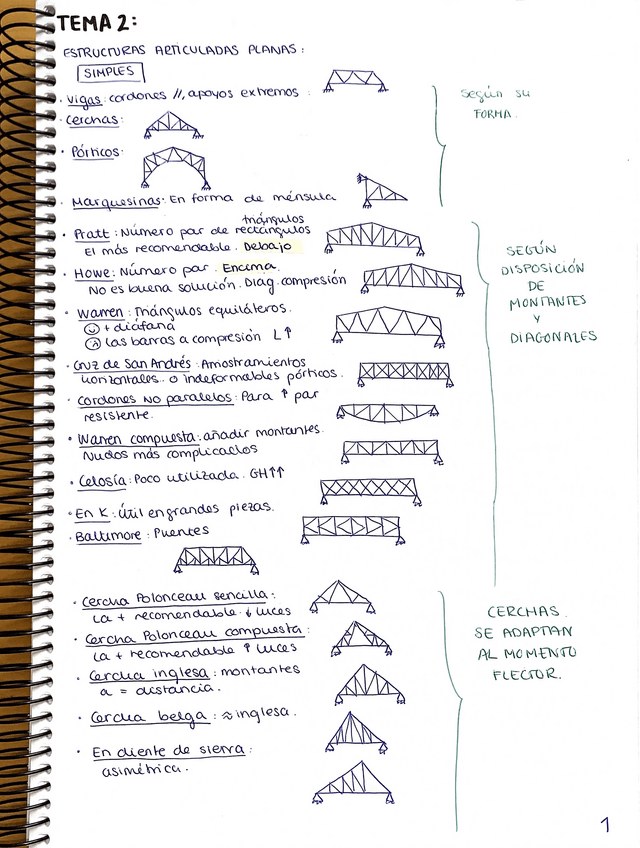 TEMA 2:
ESTRUCTURAS ARTICULADAS PLANAS:
SIMPLES
· Vigas: cordones //, apoyos extremos :
· Cerchas:
· Pórticos:
· Marquesinas: En forma de ménsula
Según su
FORMA.
triángulos
· Pratt: Número par de rectángulos
El más recomendable. Debajo
· Howe: Número par. Encima.
No es buena solución. Diag. compresión
· Warren: Triángulos equiláteros.
+ diáfana
las barras a compresión L↑
· Cruz de San Andrés: Amostramientos
horizontales. o indeformables pórticos.
· Cordones No paralelos: Para ↑ par
resistente.
· Warren compuesta: añadir montantes.
Nudos más complicados
· Celosía: Poco utilizada. GH↑↑
· En K: útil en grandes piezas.
· Baltimore: Puentes
SEGÚN
DISPOSICIÓN
DE
MONTANTES
Y
DIAGONALES
· Cercha Polonceau sencilla:
La + recomendable. ↓ luces
· Cercha Polonceau compuesta:
La + recomendable ↑ luces
· Cercha inglesa: montantes
a = distancia.
· Cercha belga: ≈ inglesa.
· En diente de sierra:
asimétrica.
CERCHAS.
SE ADAPTAN
AL MOMENTO
FLECTOR.
1